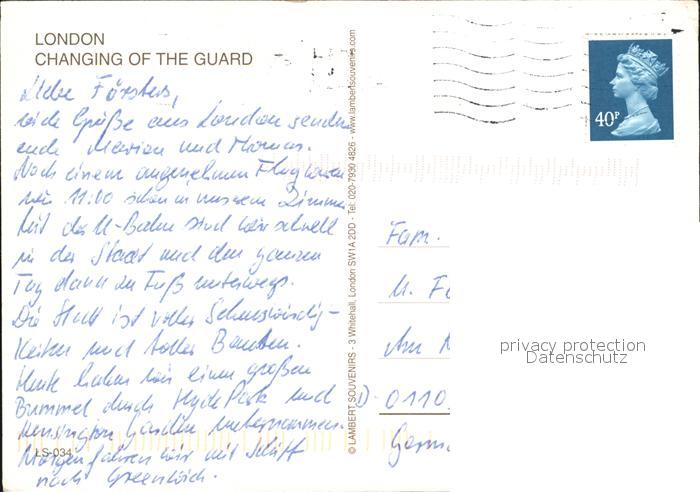 LONDON
CHANGING OF THE GUARD
Liebe Försters,
viele Grüße aus London senden
euch Marion und Thomas.
Nach einem angenehmen Flug waren
wir 11:00 schon in unserem Zimmer
Mit der U-Bahn sind wir schnell
in der Stadt und den ganzen
Tag dann zu Fuß unterwegs.
Die Stadt ist voller Sehenswürdig-
keiten und toller Bauten.
Heute haben wir einen großen
Bummel durch Hyde Park und
Kensington Garden unternommen.
Morgen fahren wir mit Schiff
nach Greenwich.
LS-034
© LAMBERT SOUVENIRS - 3 Whitehall, London SW1A 2DD - Tel: 020-7930 4826 - www.lambertsouvenirs.com
40P
Fam.
U. Fö
Am
D-0110
Germ
privacy protection
Datenschutz